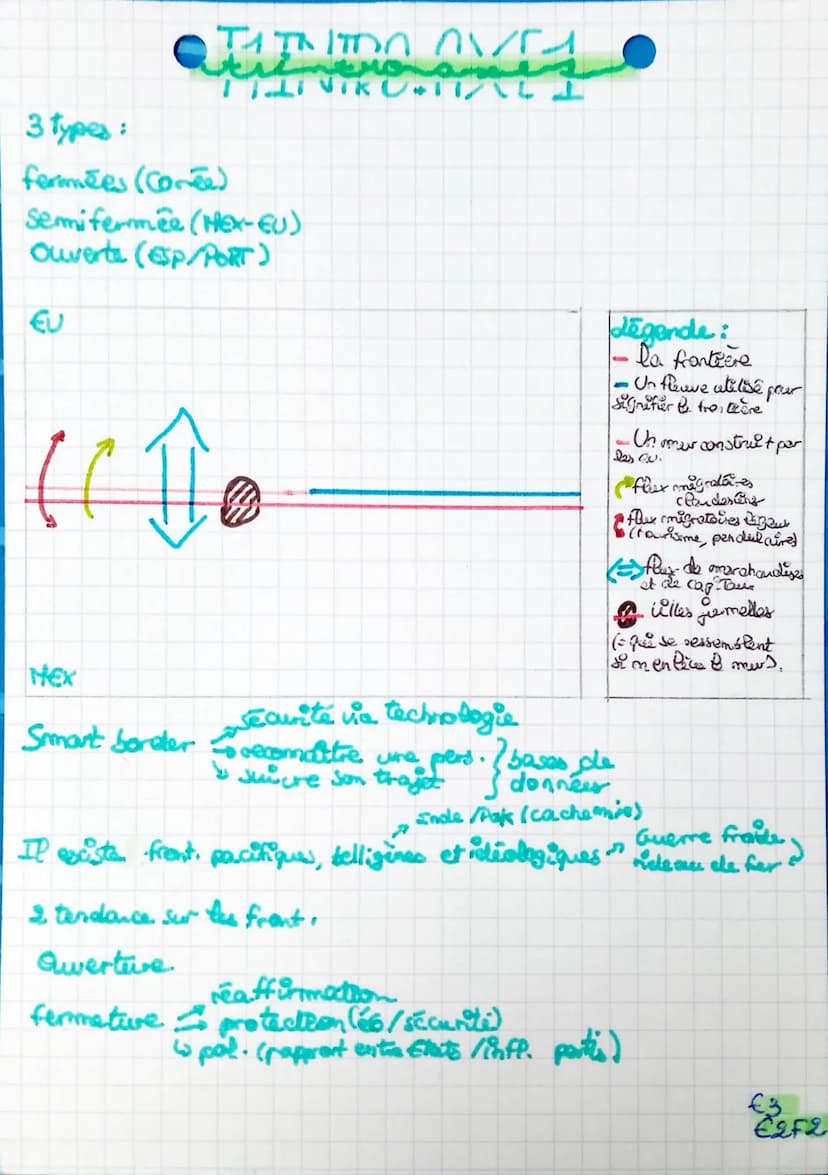 T1 INTRO. AXE1
3 types :
fermées (Corée)
Semi fermée (MEX-EU)
Ouverte (ESP/PORT)
EU
MEX
Légende :
la frontière
Un fleuve utilisé pour
signifier la frontière
Un mur construit par
les EU.
flux migratoires
clandestins
flux migratoires légaux
(tourisme, pendulaire)
flux de marchandises
et de capitaux
villes jumelles
(= qui se ressemblent
si m en lève le mur).
Smart border
sécurité via technologie
reconnaître une pers.
suivre son trajet
bases de
données
Inde /Pak (cachemire)
Il existe front. pacifiques, belligènes et idéologiques
Guerre froide
rideau de fer
2 tendance sur les front.
Ouverture.
fermeture
réaffirmation
protection (éco/sécurité)
pol. (rapport entre Etats /inff. partis)
€3
€2F2